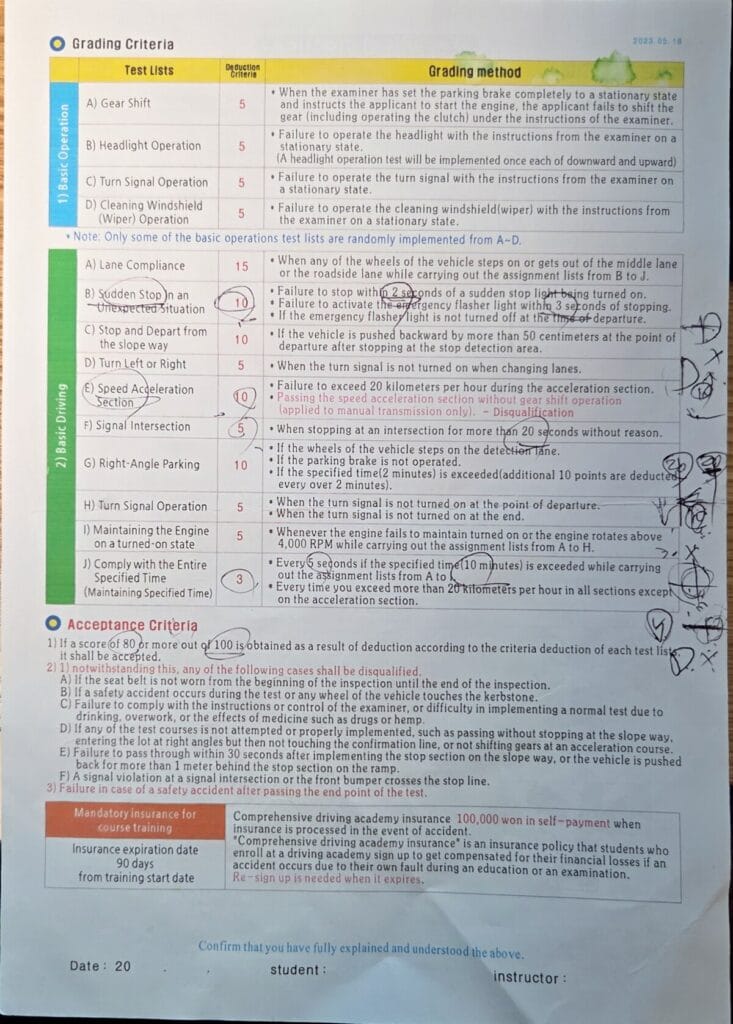 2023. 05. 18
Grading Criteria
Test Lists
Deduction Criteria
Grading method
1) Basic Operation
A) Gear Shift
5
• When the examiner has set the parking brake completely to a stationary state
and instructs the applicant to start the engine, the applicant fails to shift the
gear (including operating the clutch) under the instructions of the examiner.
B) Headlight Operation
5
• Failure to operate the headlight with the instructions from the examiner on a
stationary state.
(A headlight operation test will be implemented once each of downward and upward)
C) Turn Signal Operation
5
• Failure to operate the turn signal with the instructions from the examiner on
a stationary state.
D) Cleaning Windshield
(Wiper) Operation
5
• Failure to operate the cleaning windshield(wiper) with the instructions from
the examiner on a stationary state.
• Note: Only some of the basic operations test lists are randomly implemented from A~D.
2) Basic Driving
A) Lane Compliance
15
• When any of the wheels of the vehicle steps on or gets out of the middle lane
or the roadside lane while carrying out the assignment lists from B to J.
B) Sudden Stop in an
Unexpected Situation
10
• Failure to stop within 2 seconds of a sudden stop light being turned on.
• Failure to activate the emergency flasher light within 3 seconds of stopping.
• If the emergency flasher light is not turned off at the time of departure.
C) Stop and Depart from
the slope way
10
• If the vehicle is pushed backward by more than 50 centimeters at the point of
departure after stopping at the stop detection area.
D) Turn Left or Right
5
• When the turn signal is not turned on when changing lanes.
E) Speed Acceleration
Section
10
• Failure to exceed 20 kilometers per hour during the acceleration section.
• Passing the speed acceleration section without gear shift operation
(applied to manual transmission only). - Disqualification
F) Signal Intersection
5
• When stopping at an intersection for more than 20 seconds without reason.
G) Right-Angle Parking
10
• If the wheels of the vehicle steps on the detection lane.
• If the parking brake is not operated.
• If the specified time(2 minutes) is exceeded(additional 10 points are deducted
every over 2 minutes).
H) Turn Signal Operation
5
• When the turn signal is not turned on at the point of departure.
• When the turn signal is not turned on at the end.
I) Maintaining the Engine
on a turned-on state
5
• Whenever the engine fails to maintain turned on or the engine rotates above
4,000 RPM while carrying out the assignment lists from A to H.
J) Comply with the Entire
Specified Time
(Maintaining Specified Time)
3
• Every 5 seconds if the specified time(10 minutes) is exceeded while carrying
out the assignment lists from A to
• Every time you exceed more than 20 kilometers per hour in all sections except
on the acceleration section.
Acceptance Criteria
1) If a score of 80 or more out of 100 is obtained as a result of deduction according to the criteria deduction of each test lists,
it shall be accepted.
2) 1) notwithstanding this, any of the following cases shall be disqualified.
A) If the seat belt is not worn from the beginning of the inspection until the end of the inspection.
B) If a safety accident occurs during the test or any wheel of the vehicle touches the kerbstone.
C) Failure to comply with the instructions or control of the examiner, or difficulty in implementing a normal test due to
drinking, overwork, or the effects of medicine such as drugs or hemp.
D) If any of the test courses is not attempted or properly implemented, such as passing without stopping at the slope way,
entering the lot at right angles but then not touching the confirmation line, or not shifting gears at an acceleration course.
E) Failure to pass through within 30 seconds after implementing the stop section on the slope way, or the vehicle is pushed
back for more than 1 meter behind the stop section on the ramp.
F) A signal violation at a signal intersection or the front bumper crosses the stop line.
3) Failure in case of a safety accident after passing the end point of the test.
Mandatory insurance for
course training
Insurance expiration date
90 days
from training start date
Comprehensive driving academy insurance 100,000 won in self-payment when
insurance is processed in the event of accident.
"Comprehensive driving academy insurance" is an insurance policy that students who
enroll at a driving academy sign up to get compensated for their financial losses if an
accident occurs due to their own fault during an education or an examination.
Re-sign up is needed when it expires.
Confirm that you have fully explained and understood the above.
Date : 20 . .
student :
instructor :